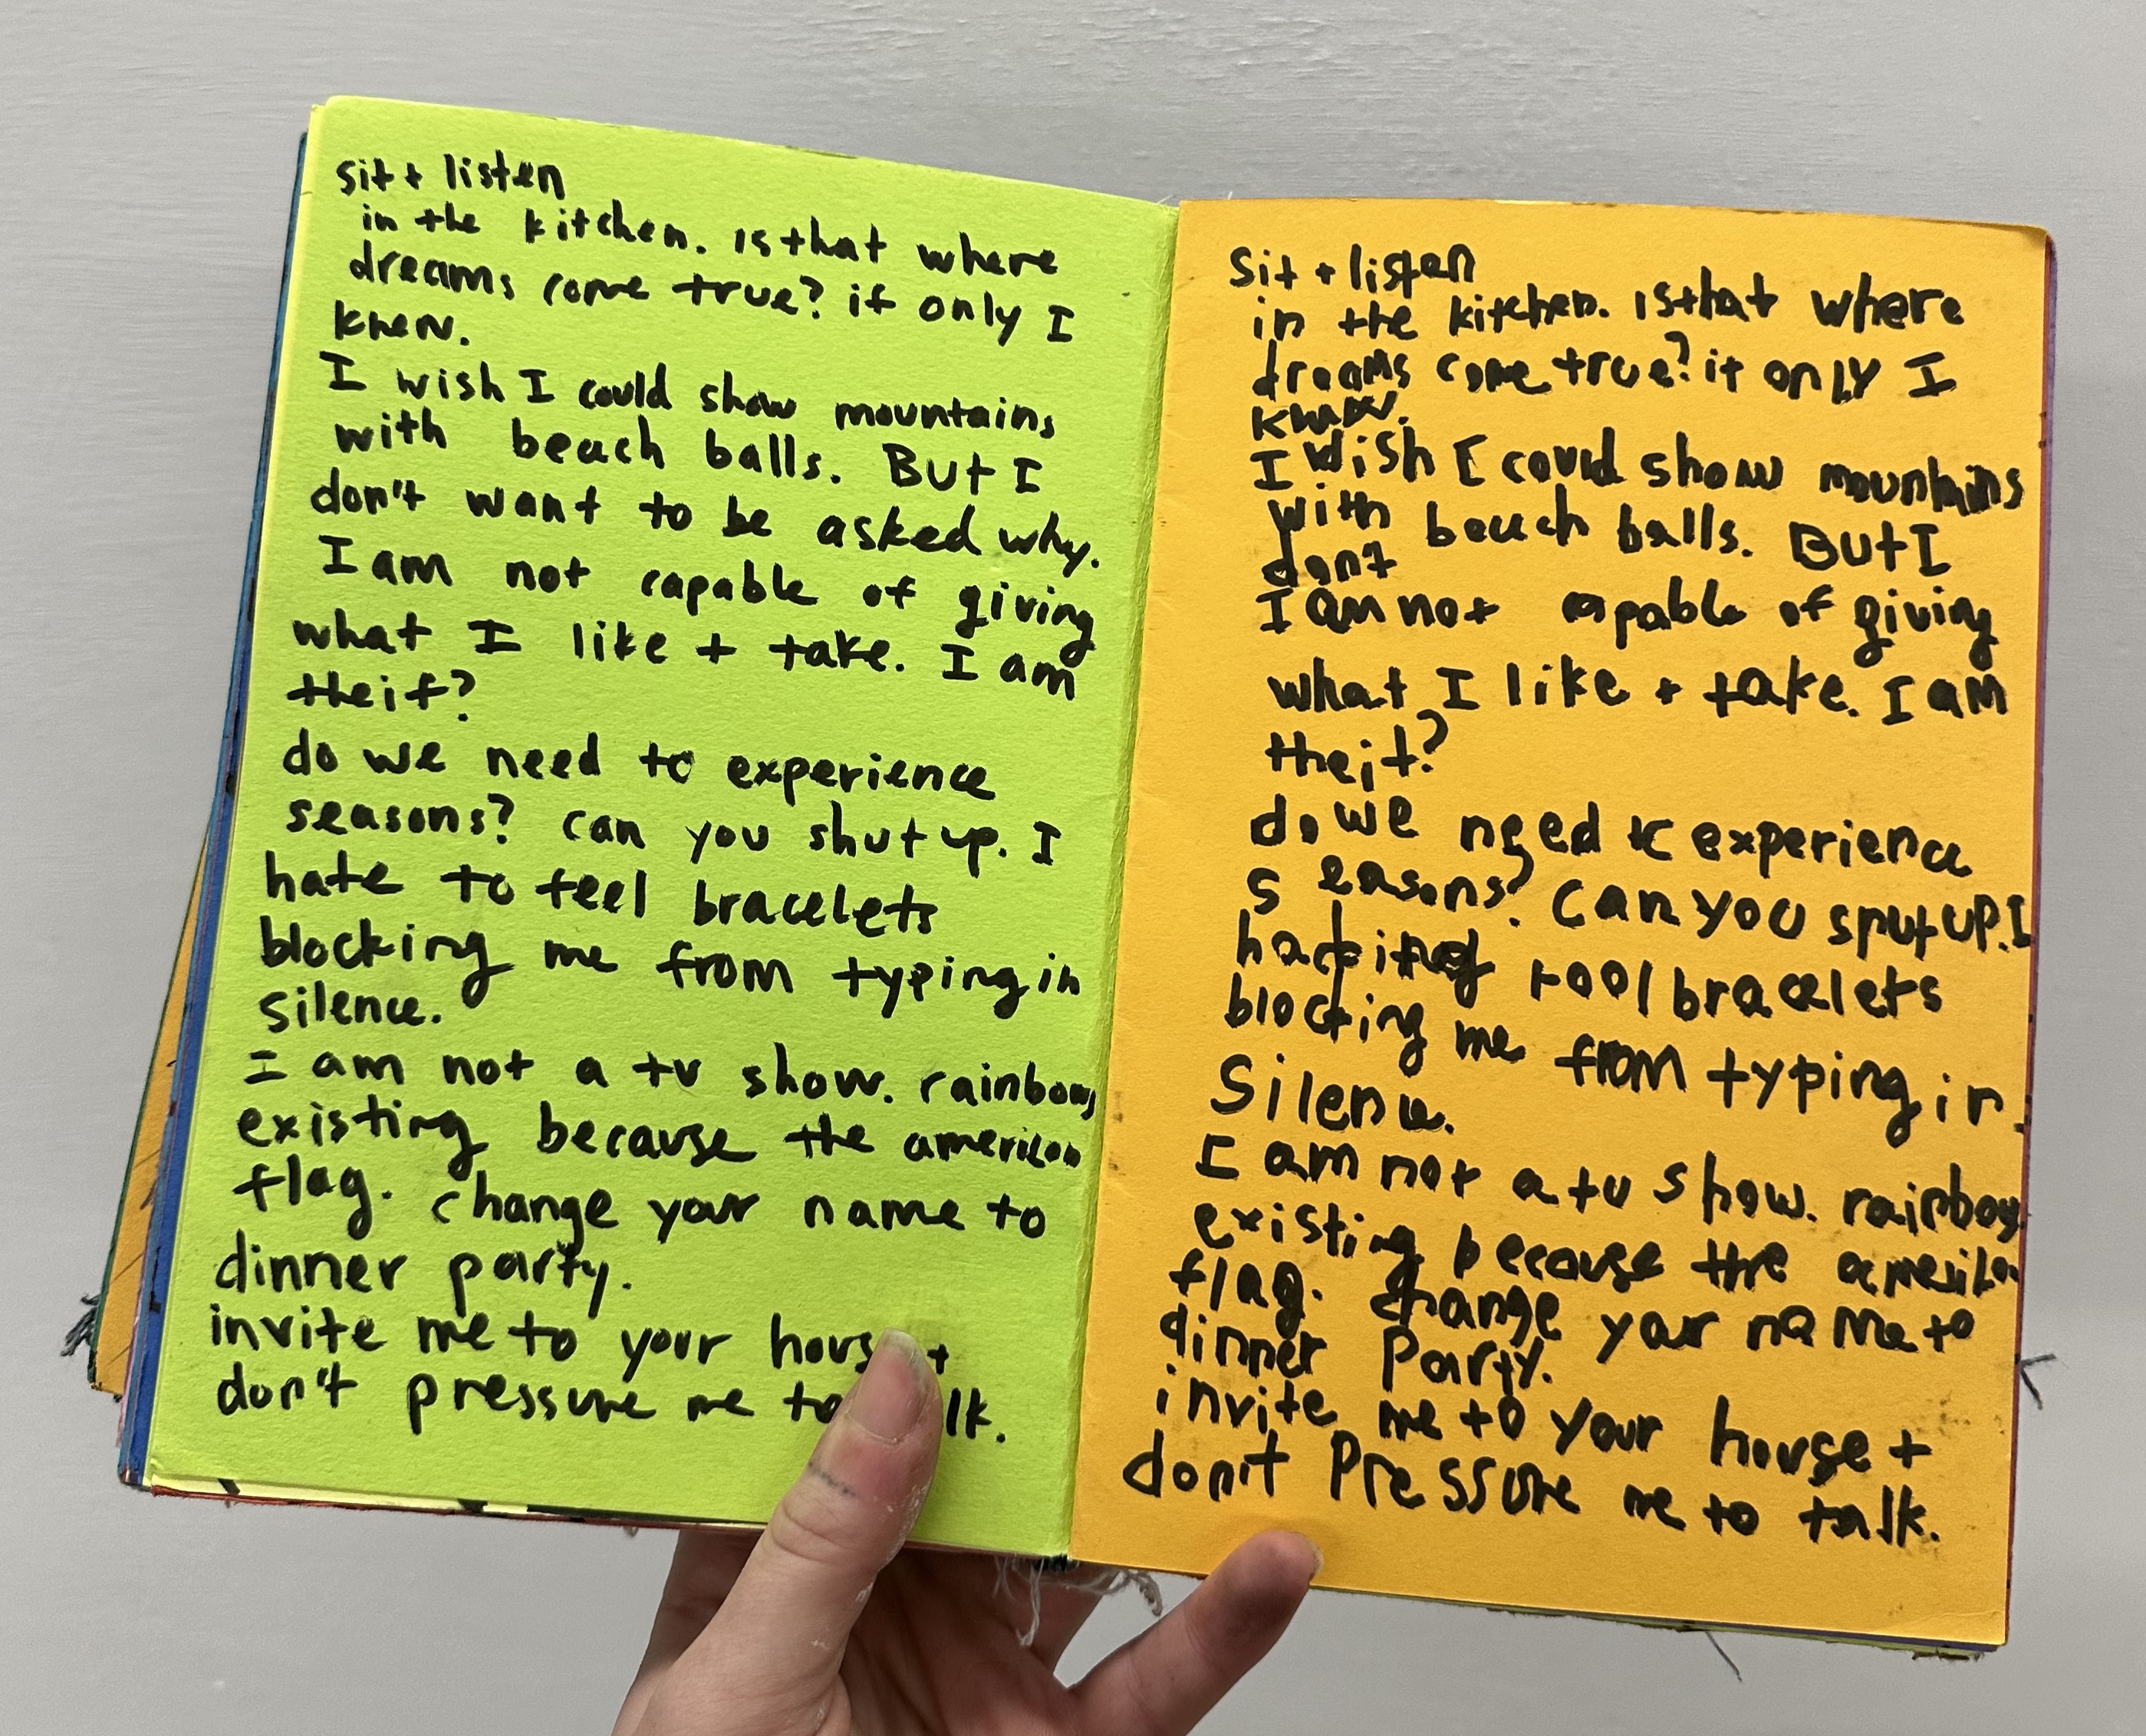 sit + listen
in the kitchen. is that where
dreams come true? if only I
knew.
I wish I could show mountains
with beach balls. But I
don't want to be asked why.
I am not capable of giving
what I like + take. I am
theif?
do we need to experience
seasons? can you shut up. I
hate to feel bracelets
blocking me from typing in
silence.
I am not a tv show. rainbows
existing because the american
flag. change your name to
dinner party.
invite me to your hous +
don't pressure me to lk.
sit + listen
in the kitchen. is that where
dreams come true? if only I
knew.
I wish I could show mountains
with beach balls. But I
dont
I am not capable of giving
what I like + take. I am
theif?
do we need to experience
seasons? can you shut up. I
bracelets
blocking me from typing in
Silence.
I am not a tv show. rainbow
existing because the american
flag. change your name to
dinner Party.
invite me to your house +
don't Pressure me to talk.